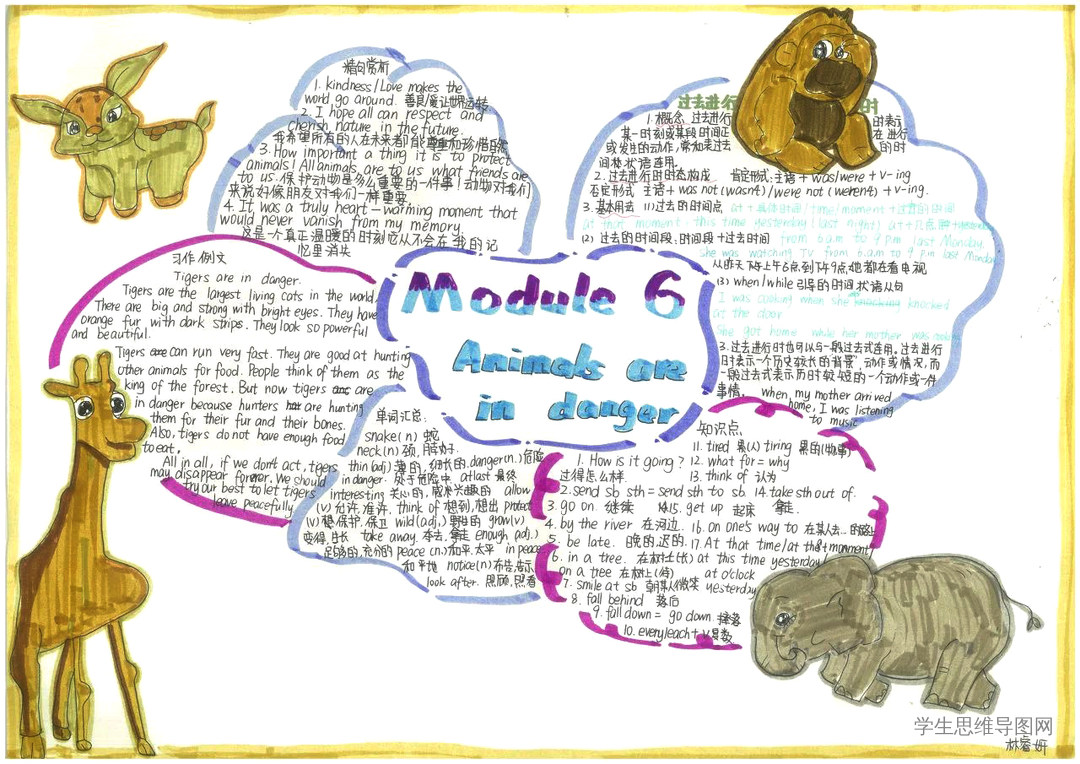 Module 6
Animals are
in danger
精句赏析
1. kindness/Love makes the
world go around. 善良/爱让世界运转
2. I hope all can respect and
cherish nature in the future.
我希望所有的人在未来都能尊重和珍惜自然
3. How important a thing it is to protect
animals! All animals are to us what friends are
to us. 保护动物是多么重要的一件事!动物对我们
来说好像朋友对我们一样重要.
4. It was a truly heart-warming moment that
would never vanish from my memory.
这是一个真正温暖的时刻它从不会在我的记
忆里消失
过去进行 时
1. 概念 过去进行 时表示
某一时刻或某段时间正 在进行
或发生的动作,常和表过去 的时
间状语连用.
2. 过去进行时时态构成 肯定形式:主语 + was/were + v-ing
否定形式 主语 + was not (wasn't) / were not (weren't) + v-ing.
3. 基本用法 (1) 过去的时间点 at + 具体时间/time/moment + 过去的时间
at that moment. this time yesterday (last night)
(2) 过去的时间段. 时间段+过去时间 from 6 am to 9 pm last Monday.
she was watching TV from 6 am to 9 pm last Monday
从昨天下午上午6点到下午9点,他都在看电视
(3) when/while 引导的时间状语从句
I was cooking when she knocking knocked
at the door
She got home while her mother was cooking
3. 过去进行时也可以与一般过去式连用.过去进行
时表示一个历史较长的"背景"动作或情况,而
一般过去式表示历时较短的一个动作或一件
事情. when my mother arrived
home, I was listening
to music
习作例文
Tigers are in danger.
Tigers are the largest living cats in the world.
There are big and strong with bright eyes. They have
orange fur with dark strips. They look so powerful
and beautiful.
Tigers can run very fast. They are good at hunting
other animals for food. People think of them as the
king of the forest. But now tigers are
in danger because hunters are hunting
them for their fur and their bones.
Also, tigers do not have enough food
to eat.
All in all, if we don't act, tigers
may disappear forever. We should
try our best to let tigers
leave peacefully
单词汇总:
snake(n) 蛇
neck(n) 颈,脖子.
thin(adj) 薄的,细长的. danger(n.)危险
in danger. 处于危险中 at last 最终
interesting 关心的,感兴趣的 allow
(v) 允许,准许. think of 想到,想出 protect
(v) 保护,保卫 wild(adj.) 野生的 grow(v)
变得,生长 take away. 夺去,拿走 enough adj.)
足够的,充分的 peace (n.) 和平,太平 in peace
和平地 notice(n) 布告,启示
look after. 照顾,照看
知识点
1. How is it going?
过得怎么样.
2. send sb sth = send sth to sb
3. go on 继续
4. by the river 在河边.
5. be late. 晚的,迟的.
6. in a tree. 在树上(长)
on a tree 在树上(长)
7. smile at sb 朝某人微笑
8. fall behind 落后
9. fall down = go down.
10. every/each +
11. tired 累(人) tiring 累的(物/事)
12. what for = why
13. think of 认为
14. take sth out of.
拿走.
15. get up 起床
16. on one's way to 在某人去...的路上
17. At that time / at the moment
at this time yesterday
at o'clock
yesterday
学生思维导图网
林睿妍